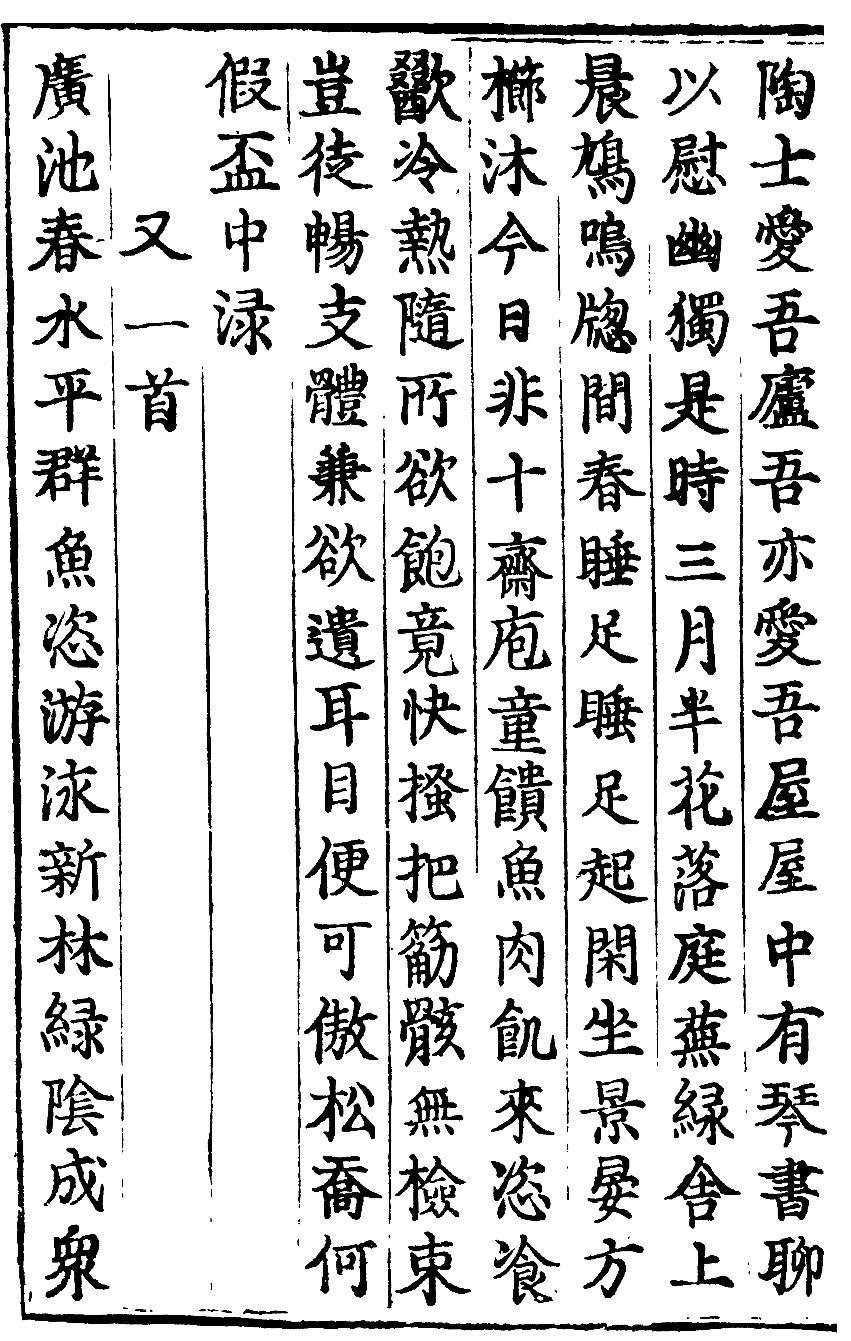 陶士愛吾廬吾亦愛吾屋屋中有琴書聊
以慰幽獨是時三月半花落庭蕪緑舍上
晨鳩鳴牕間春睡足睡足起閑坐景晏方
櫛沐今日非十齋庖童饋魚肉飢來恣飡
歠冷熱隨所欲飽竟快搔把筋骸無檢束
豈徒暢支體兼欲遺耳目便可傲松喬何
假盃中渌
又一首
廣池春水平群魚恣游泳新林緑陰成衆